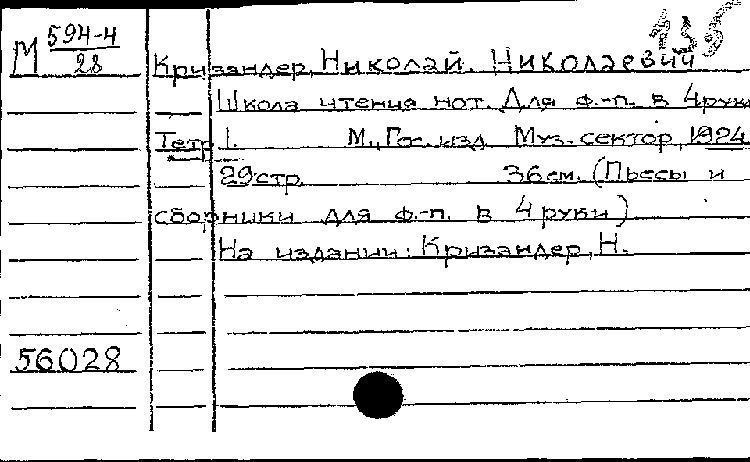 М 594-4
28
135
Кризандер, Николай. Николаевич
Школа чтения нот. Для ф.-п. в 4 руки
Тетр 1. М., Гос. изд. Муз. сектор, 1924.
29 стр. 36 см. (Пьесы и
сборники для ф.-п. в 4 руки)
На издании: Кризандер, Н.
56028